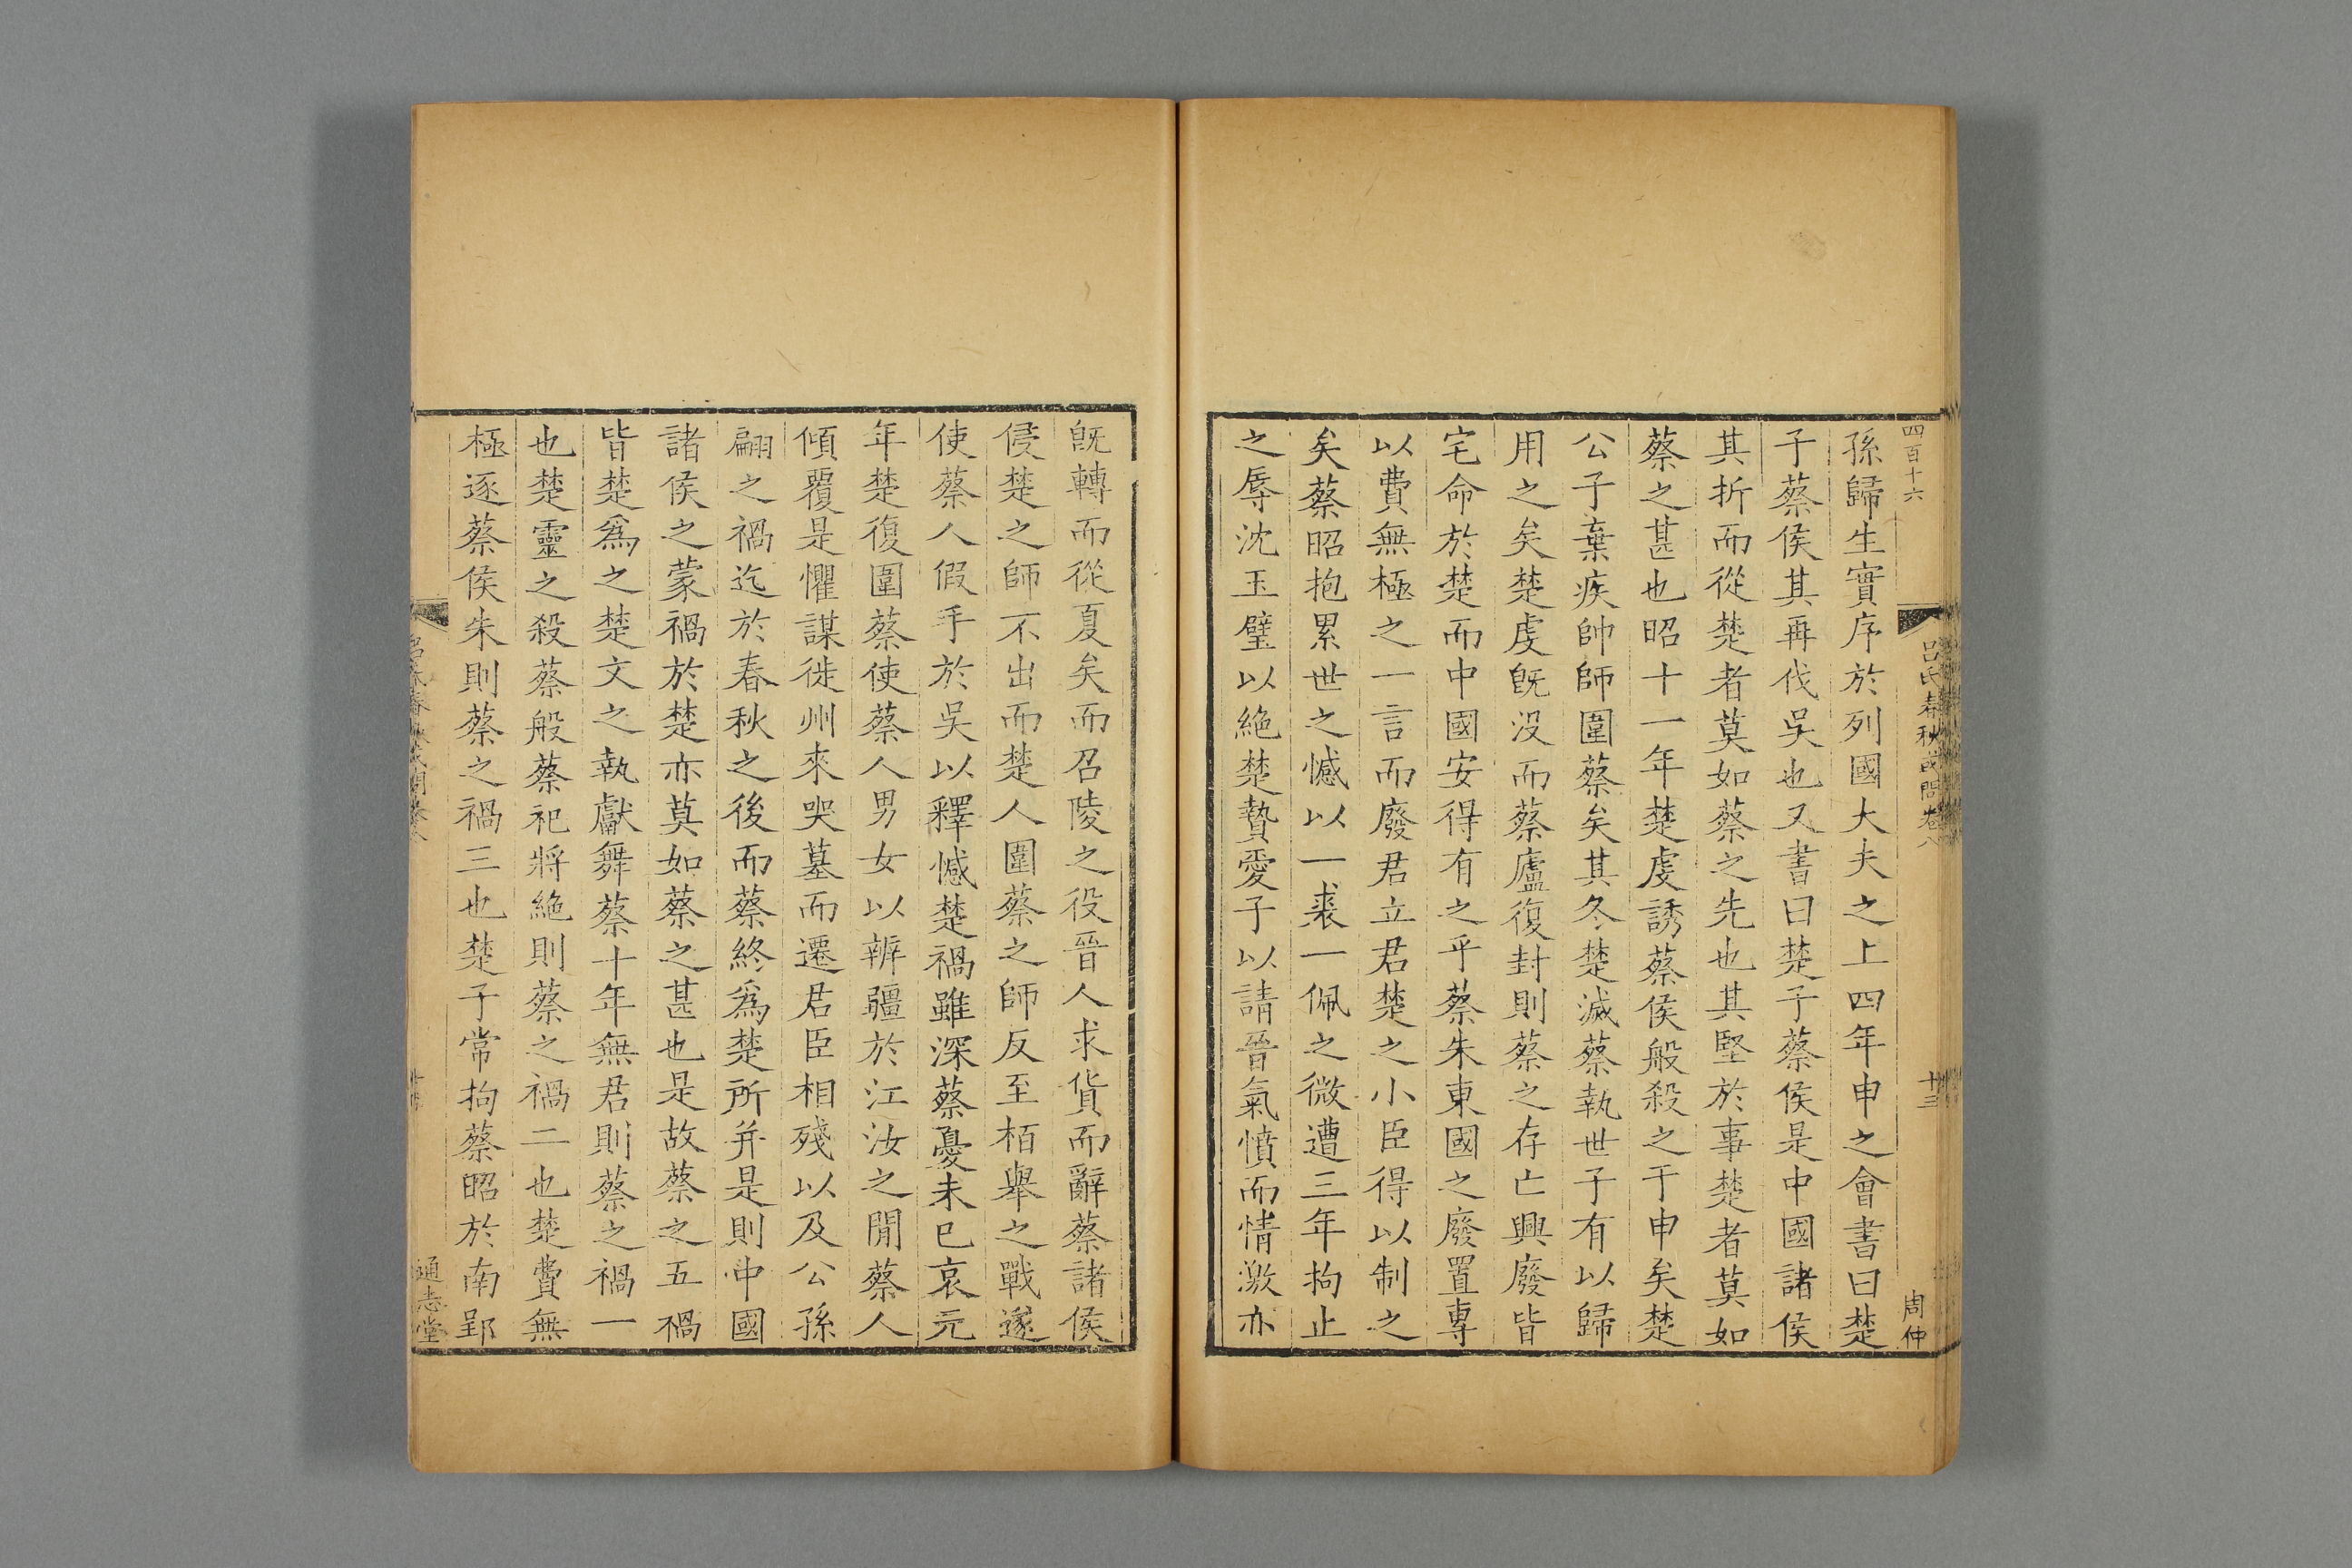 四百十六
呂氏春秋或問卷八
十三
周仲
孫歸生實序於列國大夫之上四年申之會書曰楚
子蔡侯其再伐吳也又書曰楚子蔡侯是中國諸侯
其折而從楚者莫如蔡之先也其堅於事楚者莫如
蔡之甚也昭十一年楚虔誘蔡侯般殺之于申矣楚
公子棄疾帥師圍蔡矣其冬楚滅蔡執世子有以歸
用之矣楚虔旣没而蔡廬復封則蔡之存亡興廢皆
宅命於楚而中國安得有之乎蔡朱東國之廢置專
以費無極之一言而廢君立君楚之小臣得以制之
矣蔡昭抱累世之憾以一裘一佩之微遭三年拘止
之辱沈玉璧以絶楚贄愛子以請晉氣憤而情激亦
旣轉而從夏矣而召陵之役晉人求貨而辭蔡諸侯
侵楚之師不出而楚人圍蔡之師反至栢舉之戰遂
使蔡人假手於吳以釋憾楚禍雖深蔡憂未已哀元
年楚復圍蔡使蔡人男女以辨疆於江汝之閒蔡人
傾覆是懼謀徙州來哭墓而遷君臣相殘以及公孫
翩之禍迄於春秋之後而蔡終爲楚所并是則中國
諸侯之蒙禍於楚亦莫如蔡之甚也是故蔡之五禍
皆楚爲之楚文之執獻舞蔡十年無君則蔡之禍一
也楚靈之殺蔡般蔡祀將絶則蔡之禍二也楚費無
極逐蔡侯朱則蔡之禍三也楚子常拘蔡昭於南郢
通志堂